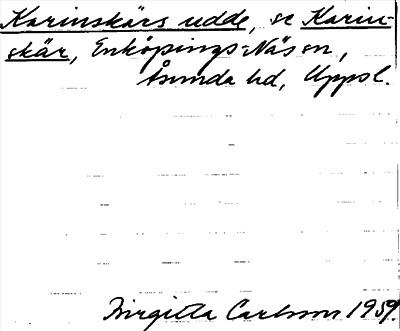 Karinskärs udde, se Karin-
skär, Enköpings-Näs sn,
Åsunda hd, Uppsl.
Birgitta Carlsson 1959.